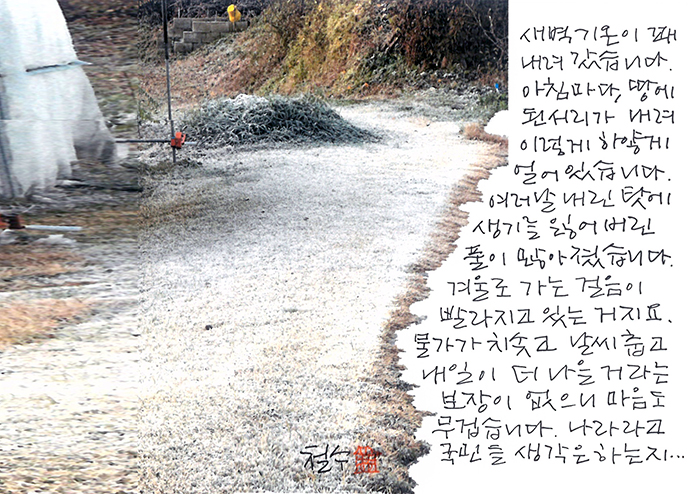 새벽기온이 꽤
내려 갔습니다.
아침마다, 땅에
된서리가 내려
이렇게 하얗게
얼어 있습니다.
여러날 내린 탓에
생기를 잃어버린
풀이 많아졌습니다.
겨울로 가는 걸음이
빨라지고 있는 거지요.
물가가 치솟고 날씨 춥고
내일이 더 나을 거라는
보장이 없으니 마음도
무겁습니다. 나라라고
국민들 생각은 하는지...
철수